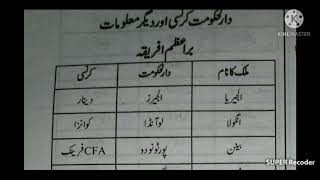 دارالحکومت کرنسی اور دیگر معلومات
براعظم افریقہ
ملک کا نام دارالحکومت کرنسی
الجیریا الجیرز دینار
انگولا لوآنڈا کوانزا
بینن پورٹونووو CFA فرینک
KINEMASTER
SUPER Recoder